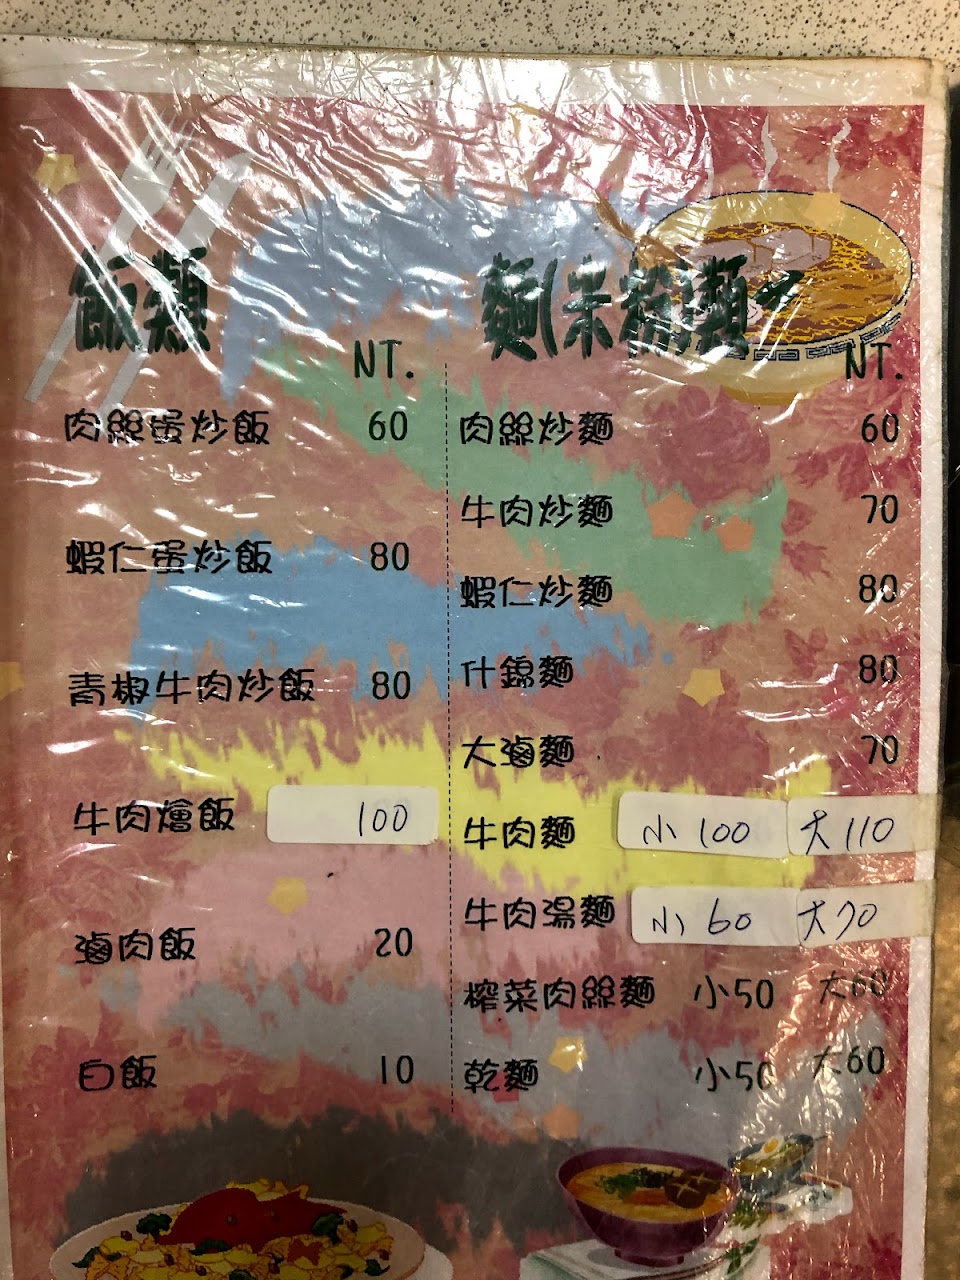 飯類
NT.
肉絲蛋炒飯 60
蝦仁蛋炒飯 80
青椒牛肉炒飯 80
牛肉燴飯 100
滷肉飯 20
白飯 10
麵(米粉)類
NT.
肉絲炒麵 60
牛肉炒麵 70
蝦仁炒麵 80
什錦麵 80
大滷麵 70
牛肉麵 小100 大110
牛肉湯麵 小60 大70
榨菜肉絲麵 小50 大60
乾麵 小50 大60